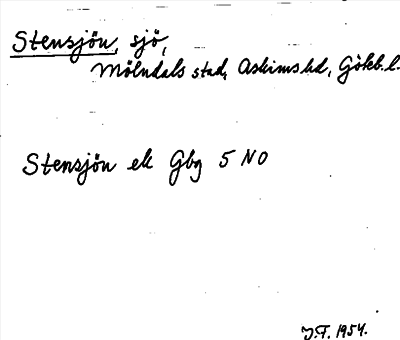 Stensjön, sjö,
Mölndals stad, Askims hd, Gökb. l.
Stensjön ek Gbg 5 NO
J.F. 1954.